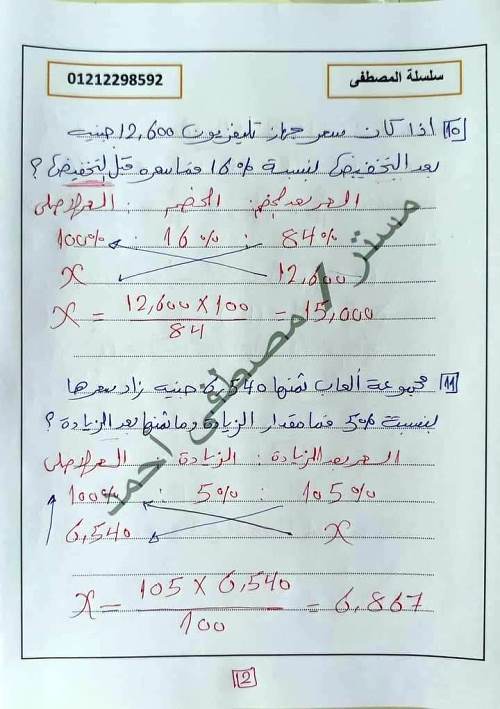 سلسلة المصطفى
01212298592
10 اذا كان سعر جهاز تليفزيون 12,600 جنيه
بعد التخفيض بنسبة 16% فما سعره قبل التخفيض ؟
السعر الاصلى : الخصم : السعر بعد الخصم
100% : 16% : 84%
x 12,600
x = 12,600 × 100 / 84 = 15,000
11 مجموعة ألعاب ثمنها 6,540 جنيه زاد سعرها
بنسبة 5% فما مقدار الزيادة وما ثمنها بعد الزيادة ؟
السعر الاصلى : الزيادة : السعر بعد الزيادة
100% : 5% : 105%
6,540 x
x = 105 × 6,540 / 100 = 6,867
12
مستر / مصطفى احمد